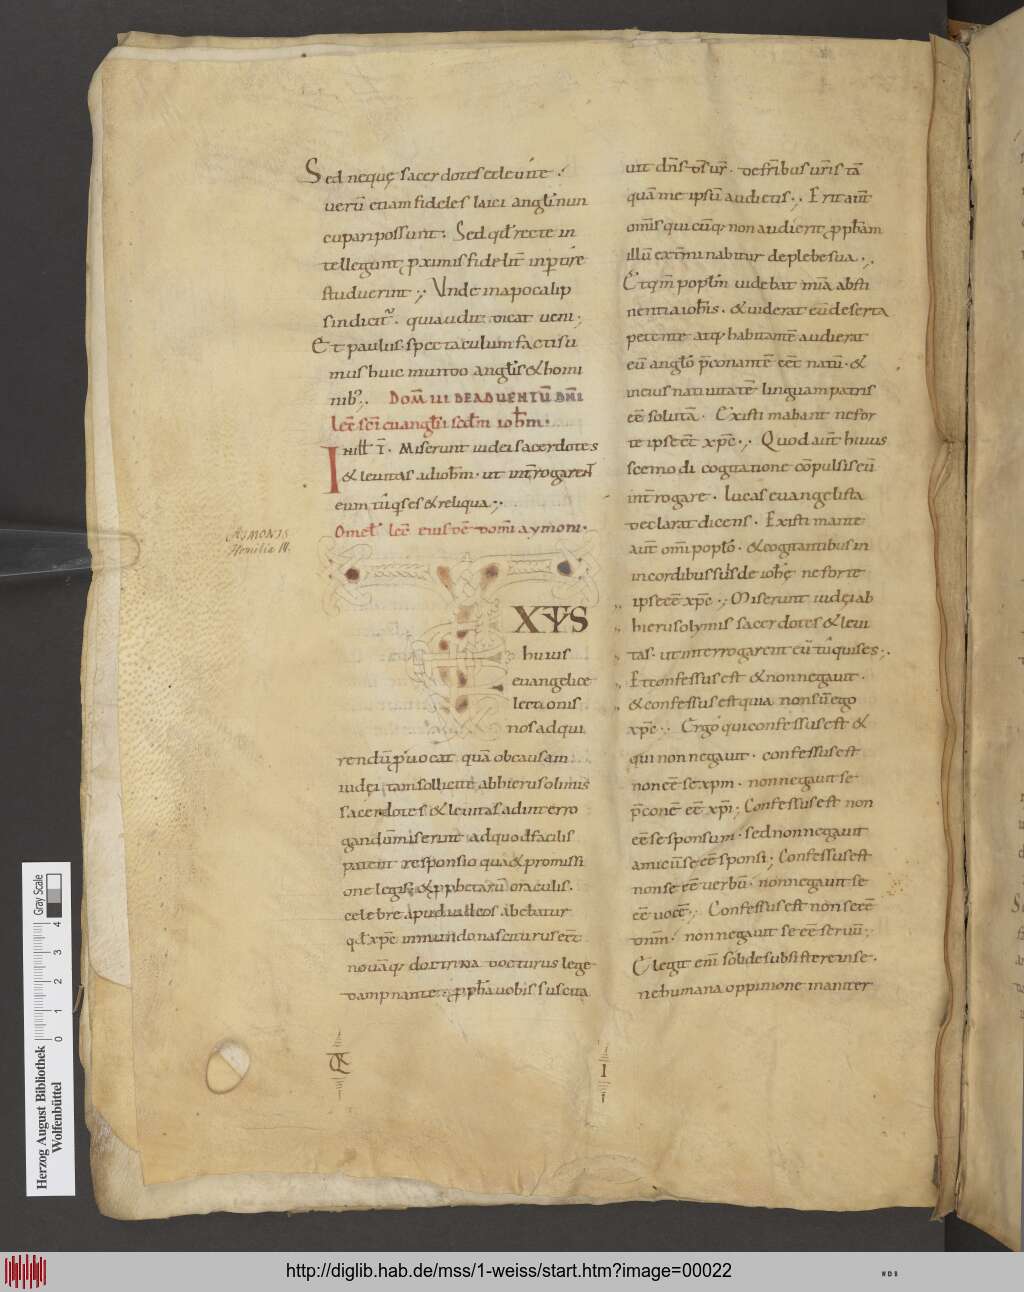 Sed neque sacerdotes & leuite ;
uerū etiam fideles laici angłi nun
cupari possunt. Sed qđ recte in
tellegunt ꝓximis fidelit̄ inꝑtire
studuerint ; Unde in apocalip
si ndicit'. qui audit dicat ueni ;
Et paulus. spectaculum facti su
mus huic mundo angłis & homi
nib; ;
DOM̄ III DE ADUENTŪ DN̄I
Lēc sc̄i euangłii scđm ioħm.
INILŁ T̄. Miserunt iudei sacerdotes
& leuitas ad ioħm. ut int̄rogarent
eum tū quis es & reliqua ;
Omeł lec̄ eiusdē domī aymoni.
AIMONIS
Homilia III.
TEXTUS
huius
euangelice
lectionis
nos ad qui
rendū ꝓuocat quā ob causam
iudei tam sollicite ab hierusolimis
sacerdotes & leuitas ad interro
gandū miserunt ad quod facilis
patent responsio quā & promissi
one legis & ꝓphetarū oraculis.
celebre apud iudeos abebatur
qđ xp̄c in mundo nasciturus eēt
nouāq; doctrina docturus lege
dampnante ; ꝓpħa uobis suscita
uit dn̄s d̄s ur̄. de fr̄ibus ur̄is tā
quā me ipsū audietis ; Erit aūt
om̄is qui cūq; non audierit ꝓpħam
illū ext̄minabitur de plebe sua ;
Et qm̄ popłm uidebat mīa absti
nentia ioħis. & uiderat eū deserta
petente atq; habitantē audierat
eū angło p̄conantē eēt natū. &
in eius natiuitatē linguam patris
eē solutā. Existimabant ne for
te ipse eēt xp̄c ; Quod aūt huius
scemodi cogitatione cōpulsi s̄ eū
int̄rogare. lucas euangelista
declarat dicens. Existimante
aūt omī popło. & cogitantibus in
in cordibus suis de ioħe ne forte
ipse eē xp̄c ; Miserunt iudęi ab
hierusolymis sacerdotes & leui
tas. ut interrogarent eū tū quis es ;
Et confessus est & non negauit.
& confessus est quia non sū ego
xp̄c ; Ergo qui confessus est &
qui non negauit. confessus est
non eē se xpm. non negauit se
p̄conē eē xp̄i ; Confessus est non
eē se sponsum. sed non negauit
amicū se eē sponsi ; Confessus est
non se eē uerbū. non negauit se
eē uocē ; Confessus est non se eē
dn̄m. non negauit se eē seruū ;
Elegit enī solide subsistere in se.
ne humana oppinione inaniter
I
Herzog August Bibliothek
Wolfenbüttel
0 1 2 3 4
Gray Scale
http://diglib.hab.de/mss/1-weiss/start.htm?image=00022